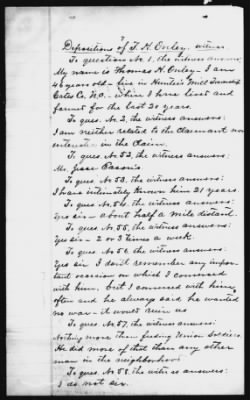 Depositions of T. H. Onley, witness
To questions No. 1, the witness answers
My name is Thomas H. Onley - I am
40 years old - live in Hunter's Mills Township
Gates Co. N.C. - where I have lived and
farmed for the last 20 years.
To ques. No. 2, the witness answers:
I am neither related to the Claimant nor
interested in the Claim.
To ques. No. 52, the witness answers:
Mr. Jesse Parsons
To ques. No. 53, the witness answers:
I have intimately known him 21 years
To ques. No. 54, the witness answers:
Yes sir - about half a mile distant.
To ques. No. 55, the witness answers:
Yes sir - 2 or 3 times a week.
To ques. No. 56, the witness answers:
Yes sir I don't remember any impor-
tant occasion on which I conversed
with him, but I conversed with him
often and he always said he wanted
no war - it would ruin us
To ques No. 57, the witness answers:
Nothing more than feeding Union Soldiers.
He did more of that than any other
man in the neighborhood
To ques No. 58, the witness answers:
I do not sir.